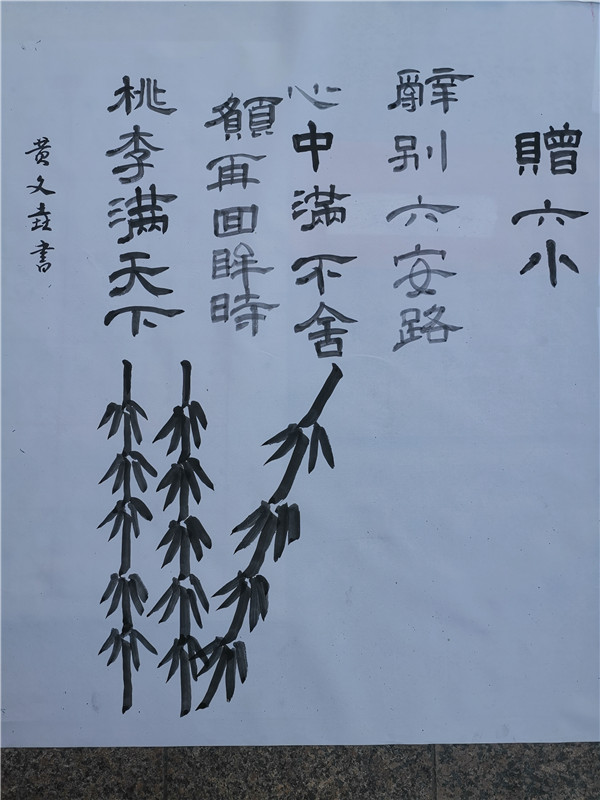 贈六小
辭别六安路
心中滿不舍
額再回眸時
桃李满天下
黄文垚書